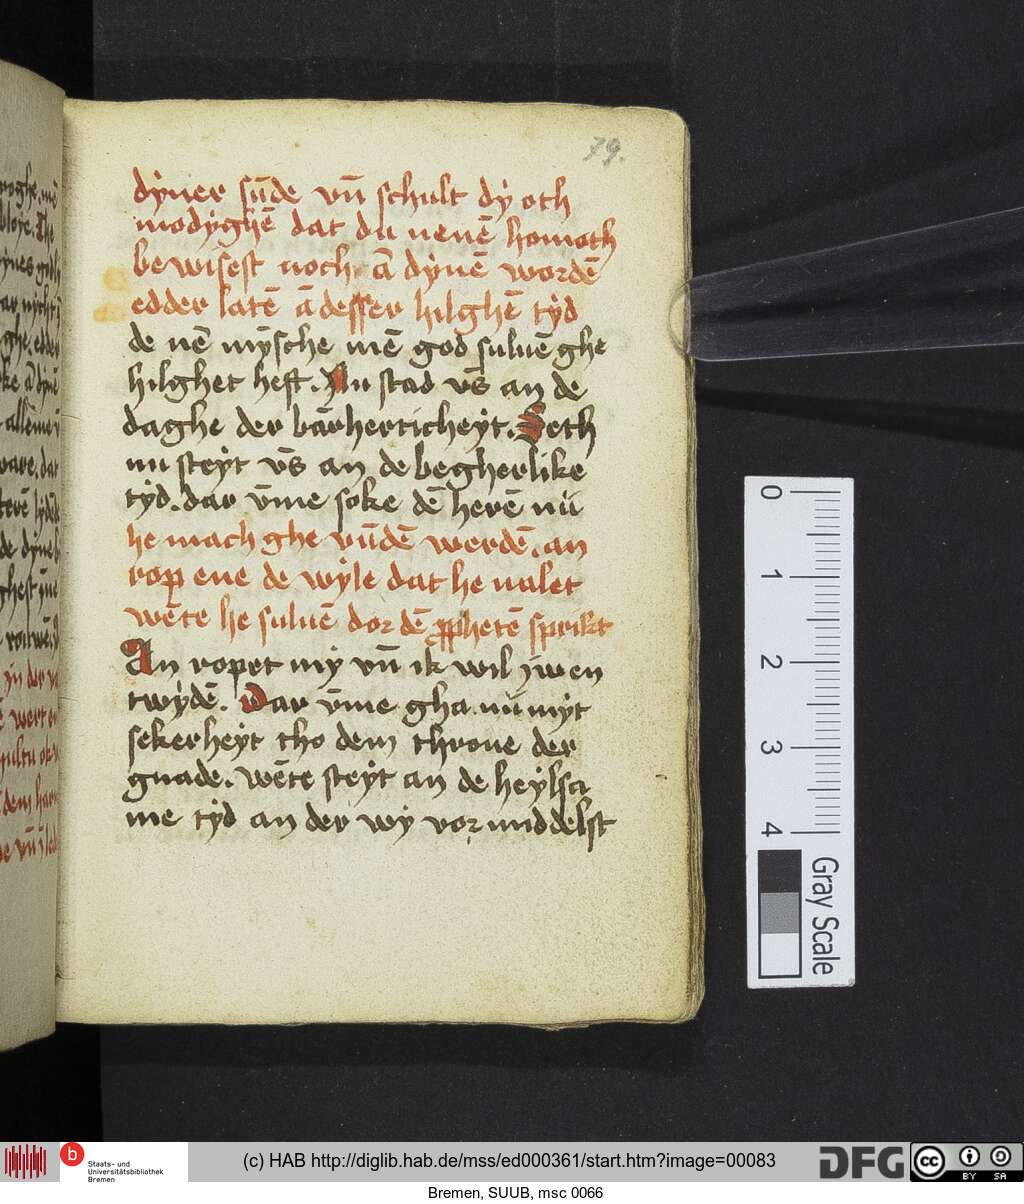 79.
dÿner sūde vn̄ schult dÿ oth
modÿghē dat du nenē homoth
bewisest noch ā dÿnē wordē
edder latē ā desser hilghē tÿd
de nē mÿsche mē god suluē ghe
hilghet heft. Nu stad vs̄ an de
daghe der bārherticheÿt. Seth
nu steÿt vs̄ an de begherlike
tÿd. dar v̄me soke dē herē nū
he mach ghe vūdē werdē. an
rop ene de wÿle dat he nalet
wēte he suluē dor dē pphetē sprikt
An ropet mÿ vn̄ ik wil iwen
twÿdē. Dar v̄me gha nū mÿt
sekerheÿt tho dem throne der
gnade. wēte steÿt an de heÿlsa
me tÿd an der wÿ vormiddelst
0
1
2
3
4
Gray Scale
b
Staats- und
Universitätsbibliothek
Bremen
(c) HAB http://diglib.hab.de/mss/ed000361/start.htm?image=00083
DFG
cc
BY SA
Bremen, SUUB, msc 0066